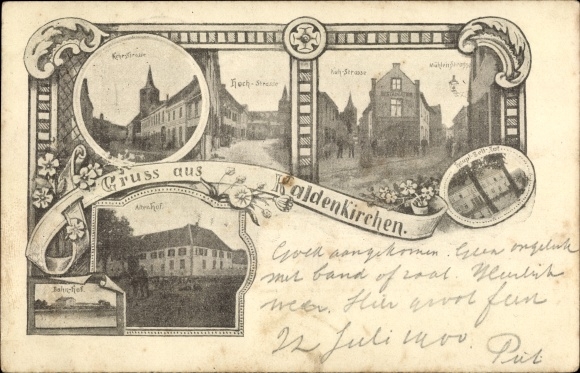 Kehrstrasse
Hoch-Strasse
Kuh-Strasse
Mühlenstrasse
Haupt-Zoll-Amt
Gruss aus Kaldenkirchen.
Altenhof.
Bahn-hof.
Goed aangekomen. Geen ongeluk
met band of zaal. Heerlijk
weer. Hier groot feest
22 Juli 1900.
Piet